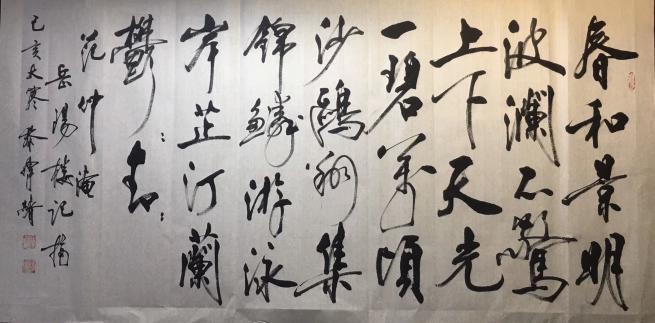 春和景明
波瀾不驚
上下天光
一碧萬頃
沙鷗翔集
錦鱗游泳
岸芷汀蘭
鬱〻青〻
范仲淹
岳陽樓記摘
己亥大寒